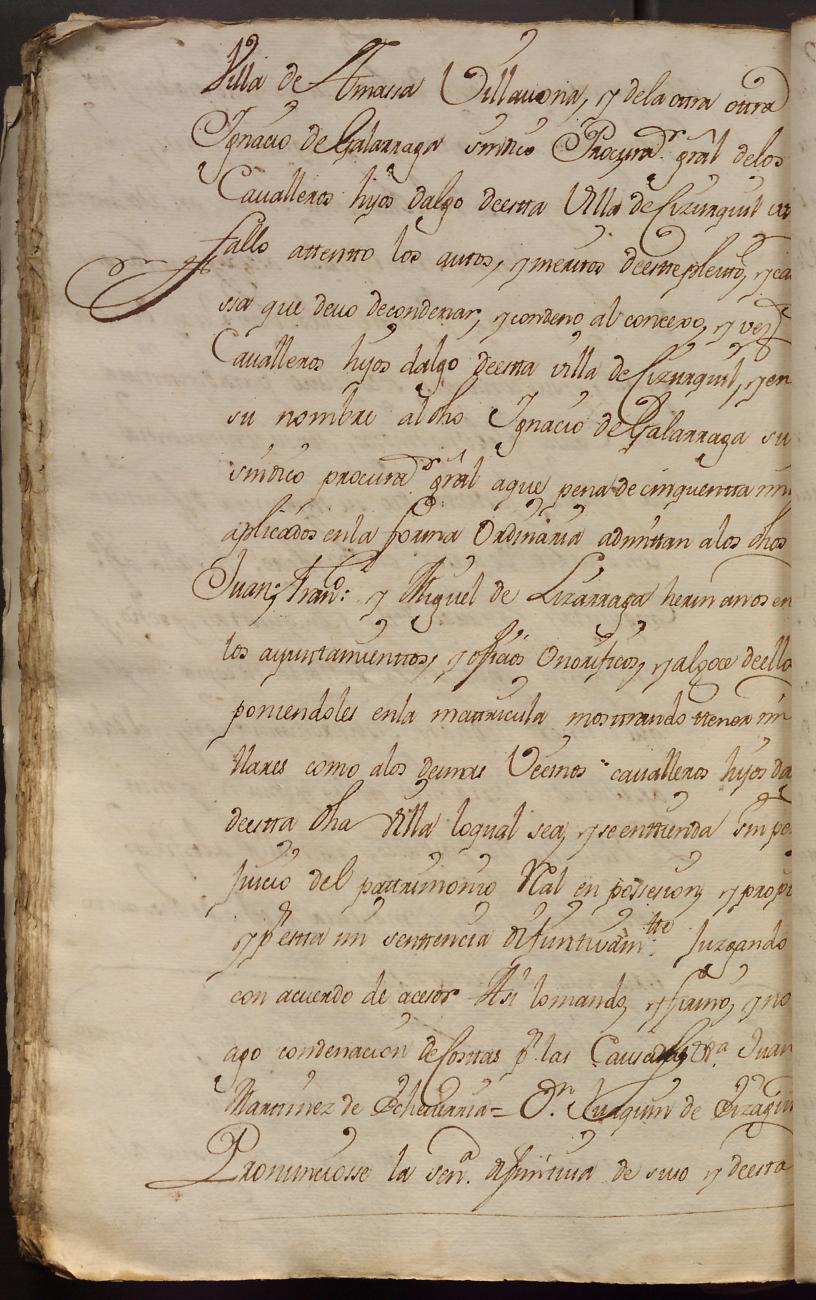 Villa de Amassa Villavona, y dela otra otra
Ignacio de Galarraga sindico Procurad.r grâl delos
Cavalleros hijos dalgo deesta Villa de Cizurquil
fallo attento los autos, y meritos deestepleito, y ca
ssa que devo decondenar, y condeno al concexo, y vez
Cavalleros hijos dalgo deesta villa de Cizurquil, y en
su nombre al dho Ignacio de Galarraga su
sindico procurad.r grâl aque pena de cinquenta mil
aplicados enla forma Ordinaria admittan alos dhos
Juan, Fran.co y Miguel de Lizarraga hermanos en
los ayuntamientos, y oficios Onorificos, y algoce deello
poniendoles enla matricula mostrando ttener mi
llares como alos demas Vecinos cavalleros hijos da
deesta dha Villa loqual sea, y seenttienda sin per
Juicio del pattrimonio Râl en possesion, y propi
y p.r esta mi senttencia difinitivam.tte Juzgando
con acuerdo de acesor Assi lomando, y firmo, y no
ago condenacion de Costtas p.r las Juan
Martinez de Echeverria = D.n Juaquin de
Pronunciosse la sen.a difinitiva de suso y deesta